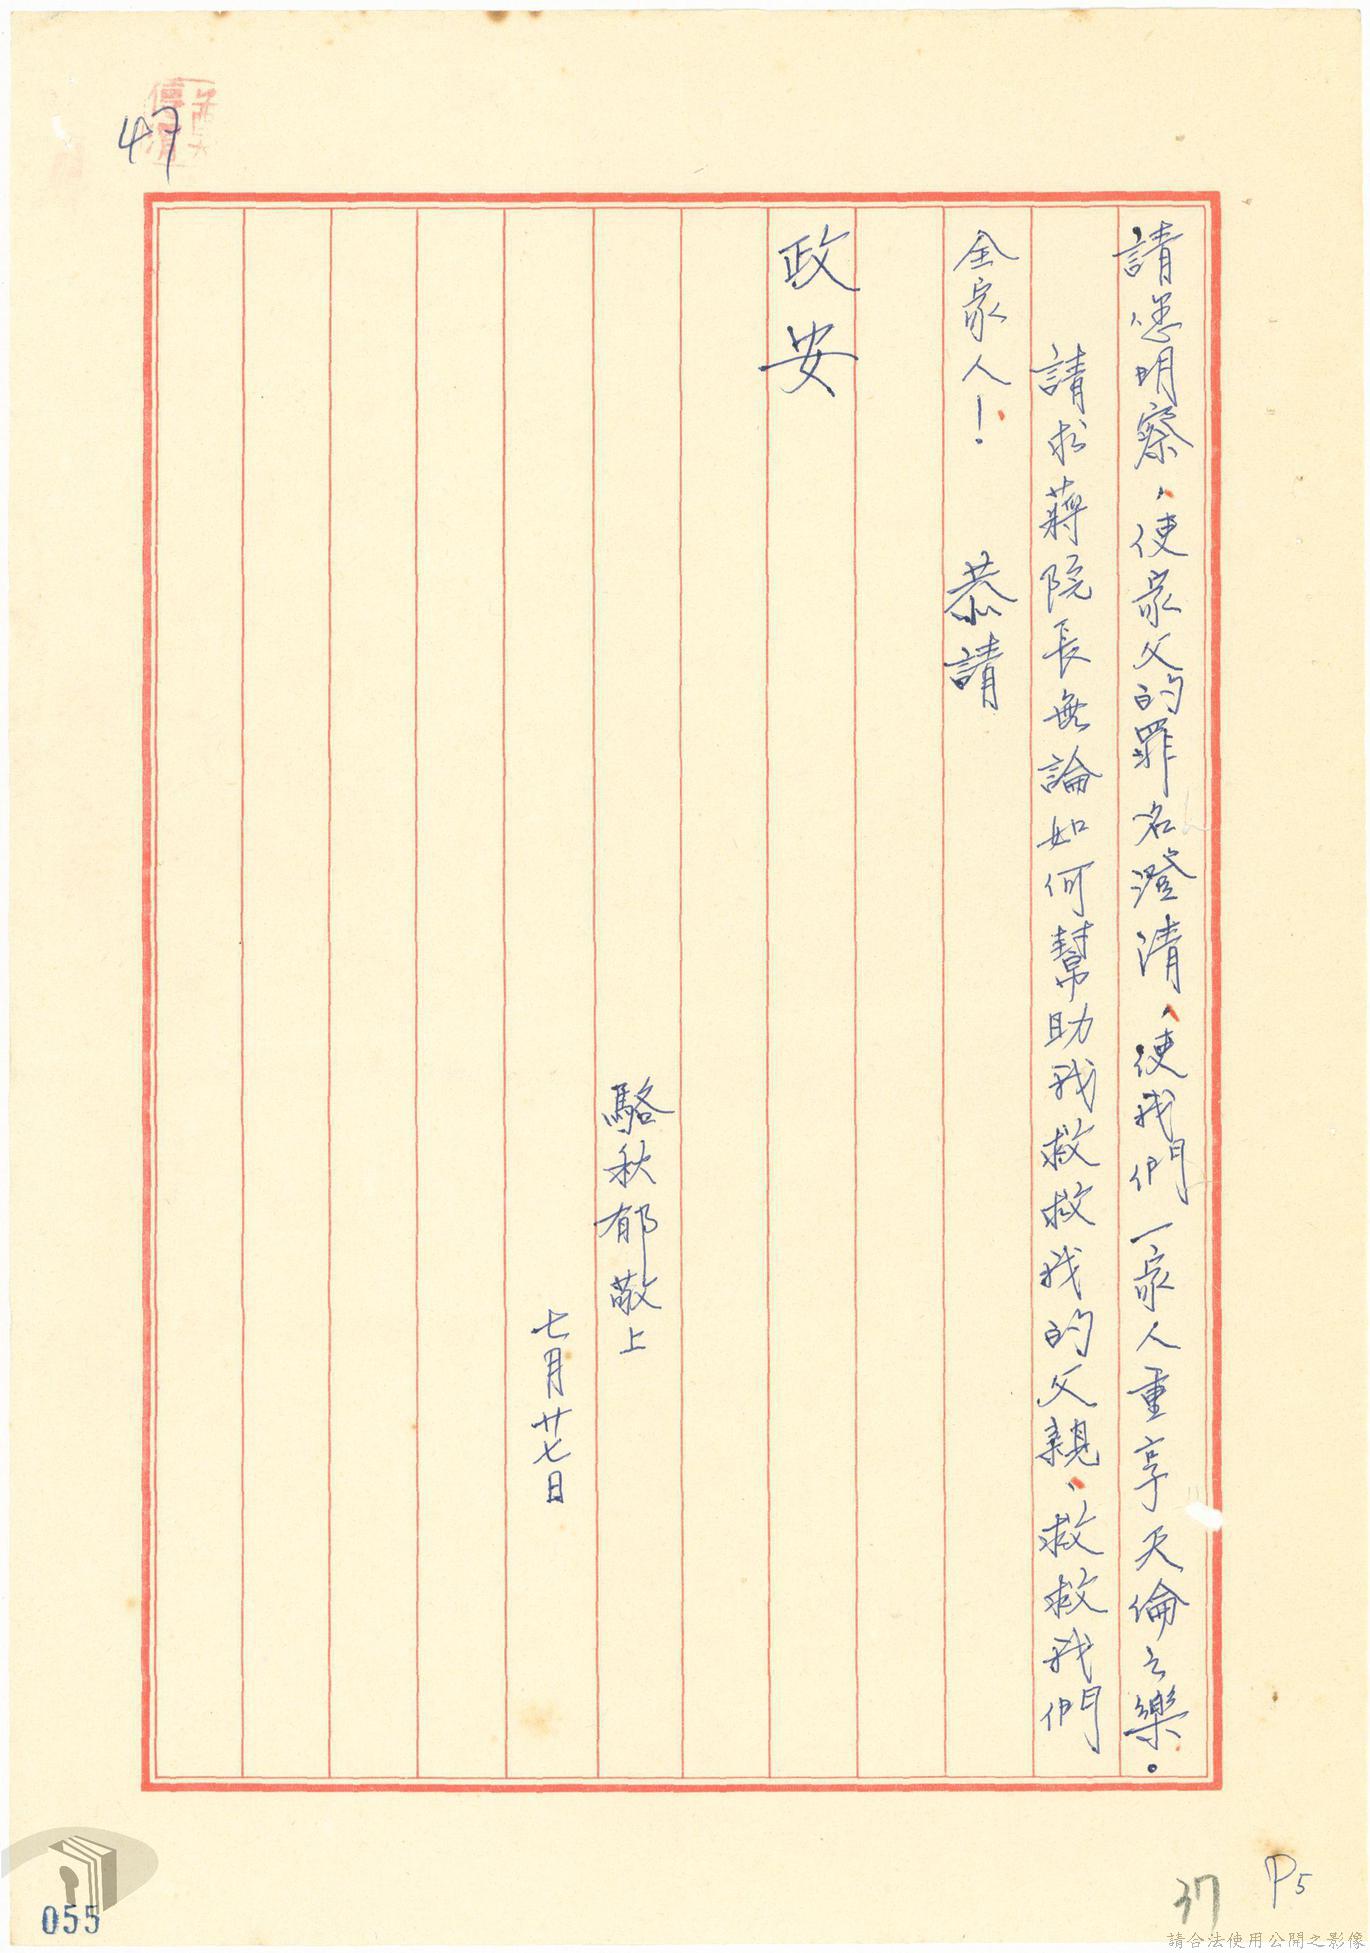 47
請您明察，使家父的罪名澄清，使我們一家人重享天倫之樂。
請求蔣院長無論如何幫助我救救我的父親，救救我們
全家人！　恭請
政安
駱秋郁敬上
七月廿七日
055
37
P5
請合法使用公開之影像